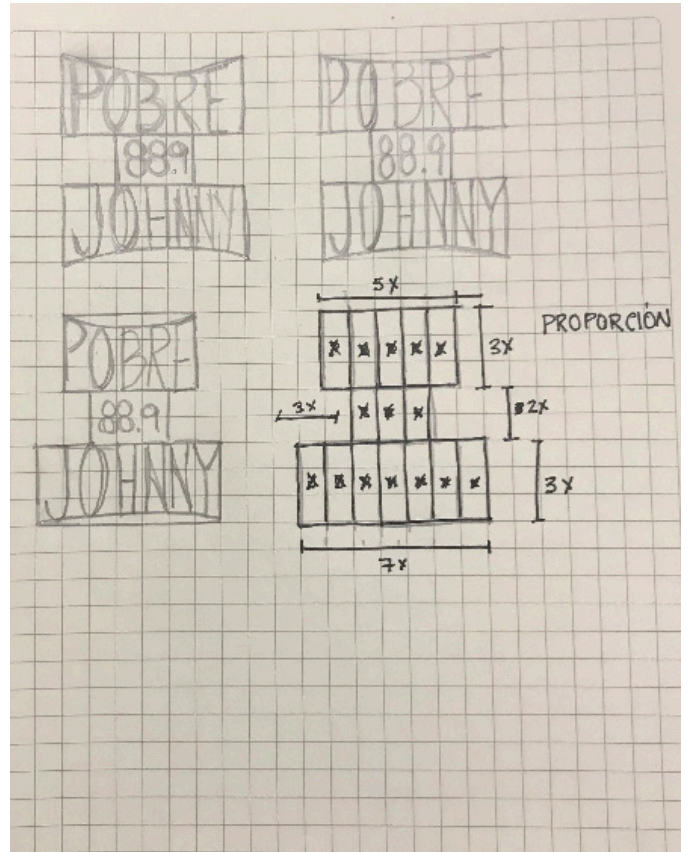 POBRE
88.9
JOHNNY
POBRE
88.9
JOHNNY
POBRE
88.9
JOHNNY
5X
X X X X X
3X
PROPORCIÓN
3X
X X X
2X
X X X X X X X
3X
7X